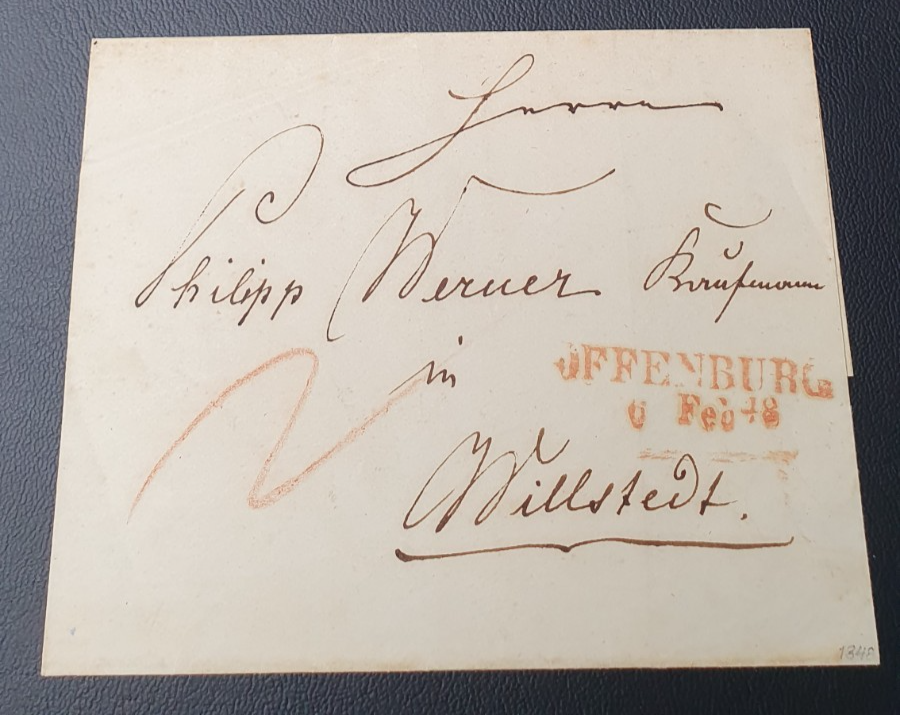 Herrn
Philipp Werner Kaufmann
in
OFFENBURG
6 Feb 48
Willstedt.
2